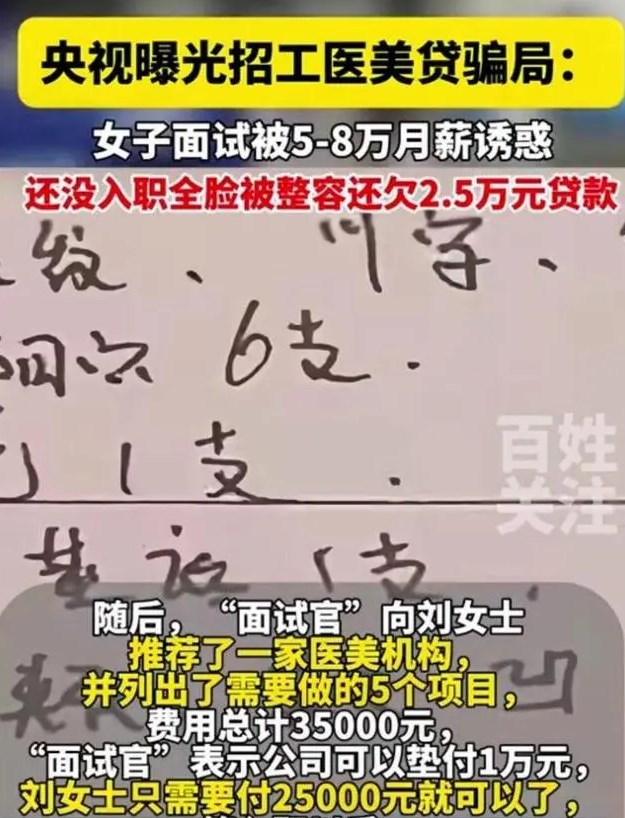 央视曝光招工医美贷骗局：
女子面试被5-8万月薪诱惑
还没入职全脸被整容还欠2.5万元贷款
纹、川字、
6支.
1支.
百姓
关注
1支.
随后，“面试官”向刘女士
推荐了一家医美机构，
并列出了需要做的5个项目，
凹
费用总计35000元，
“面试官”表示公司可以垫付1万元，
刘女士只需要付25000元就可以了，